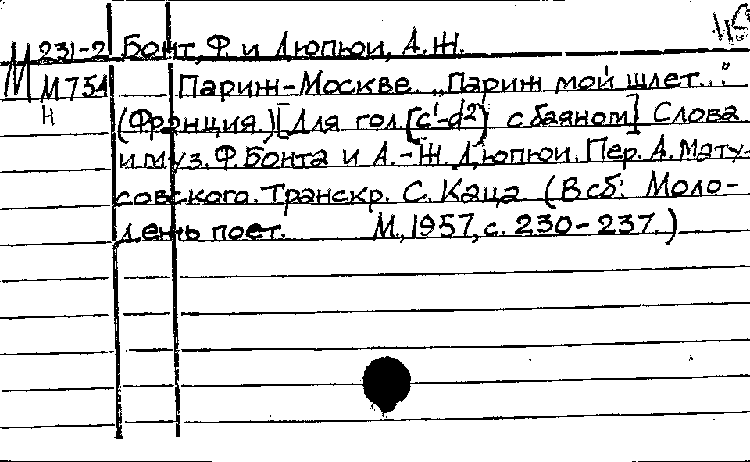 М 231-2 Бонт, Ф. и Дюпюи, А.Ж.
М 754 Париж-Москве. „Париж мой шлет..."
н (Франция.) [Для гол. (c¹-d²) с баяном] Слова
и муз. Ф. Бонта и А.-Ж. Дюпюи. Пер. А. Мату-
совского. Транскр. С. Каца (В сб: Моло-
дежь поет. М., 1957, с. 230-237.)